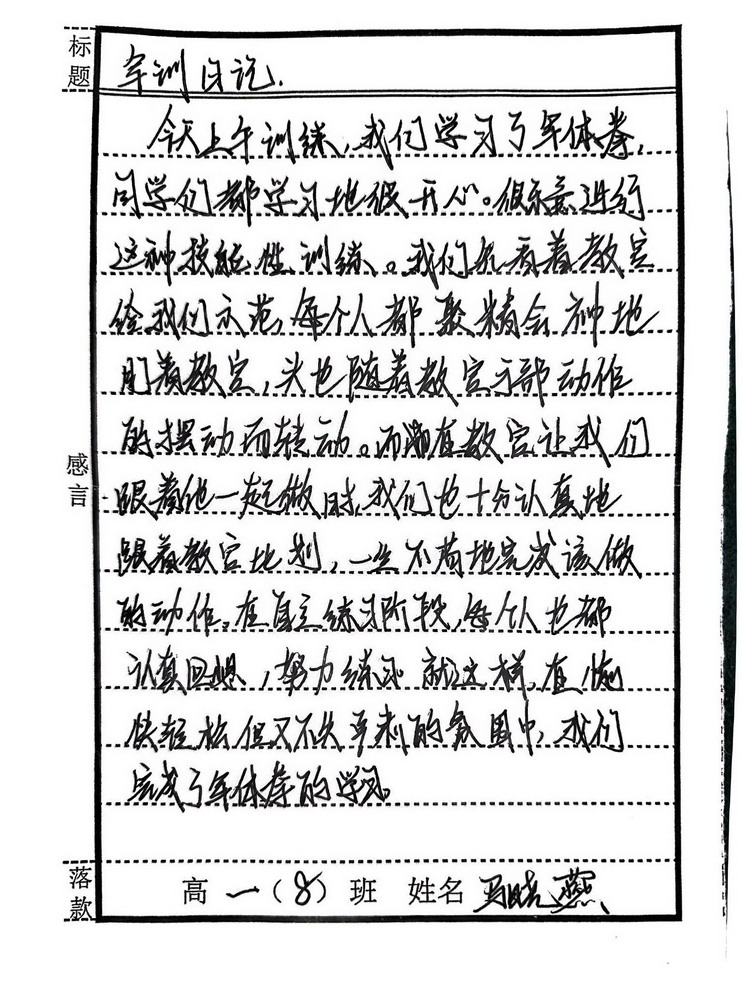 标题
军训日记.
今天上午训练,我们学习了军体拳,
同学们都学习地很开心。很乐意进行
这种技能性训练。我们先看着教官
给我们示范,每个人都聚精会神地
盯着教官,头也随着教官示部动作
的摆动而转动。而潮在教官让我们
感言
跟着他一起做时,我们也十分认真地
跟着教官比划,一丝不苟地完成该做
的动作。在自主练习阶段,每个人也都
认真回想,努力练习 就这样,在愉
快轻松但又不失平刺的氛围中,我们
完成了军体拳的学习。
落款
高一(8)班 姓名 马晓燕